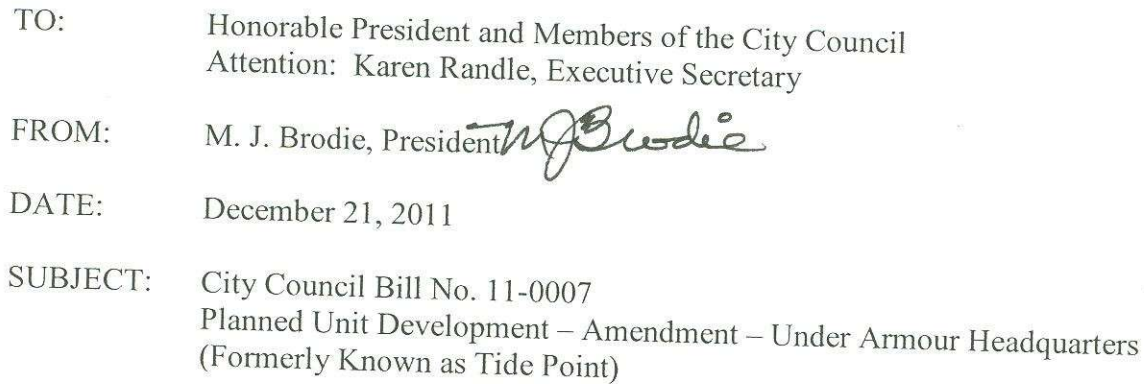 TO: Honorable President and Members of the City Council
Attention: Karen Randle, Executive Secretary
FROM: M. J. Brodie, President MJBrodie
DATE: December 21, 2011
SUBJECT: City Council Bill No. 11-0007
Planned Unit Development – Amendment – Under Armour Headquarters
(Formerly Known as Tide Point)